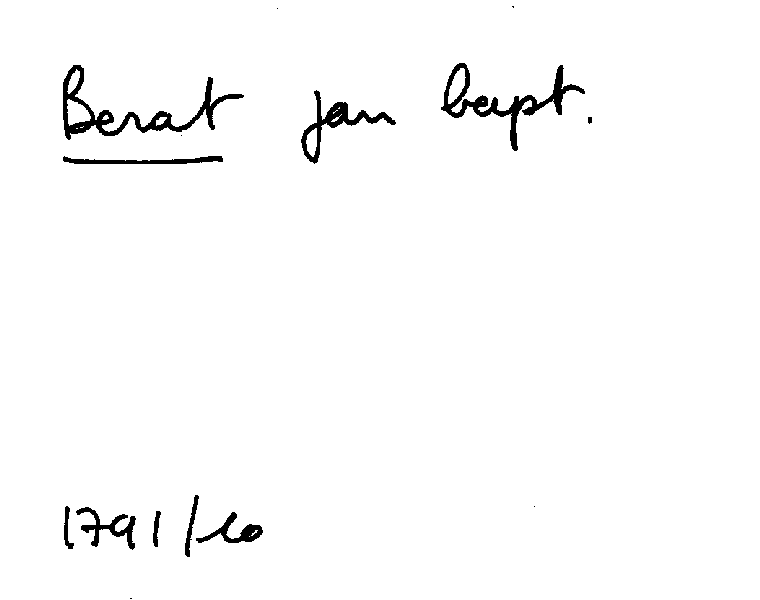 Berat jan bapt.
1791/10